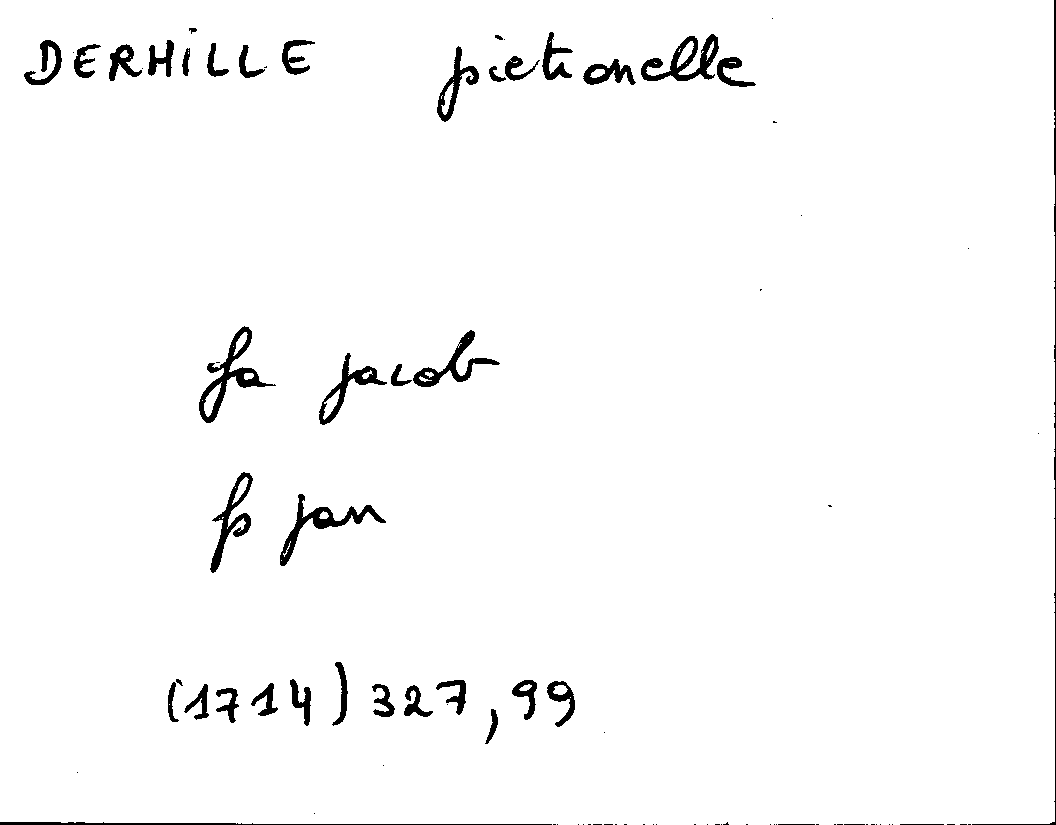 DERHiLLE pietronelle
fa jacob
p jan
(1714) 327, 99